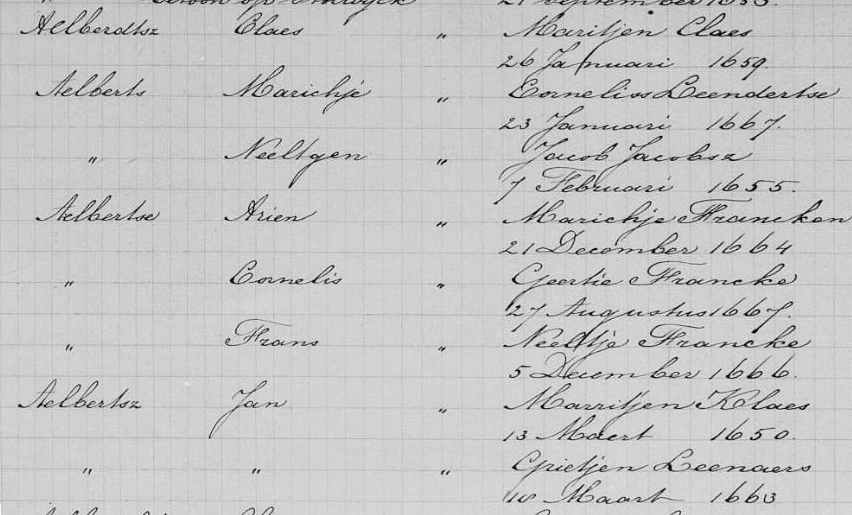 21 September 1658.
Aelberdtsz Claes " Maritjen Claes
26 Januari 1659.
Aelberts Marichje " Corneliss Leendertse
23 Januari 1667.
" Neeltgen " Jacob Jacobsz
7 Februari 1655.
Aelbertse Arien " Marichje Francken
21 December 1664
" Cornelis " Geertie Francke
27 Augustus 1667.
" Frans " Neeltje Francke
5 December 1666.
Aelbertsz Jan " Marritjen Klaes
13 Maert 1650.
" " " Grietjen Leenaers
18 Maart 1663